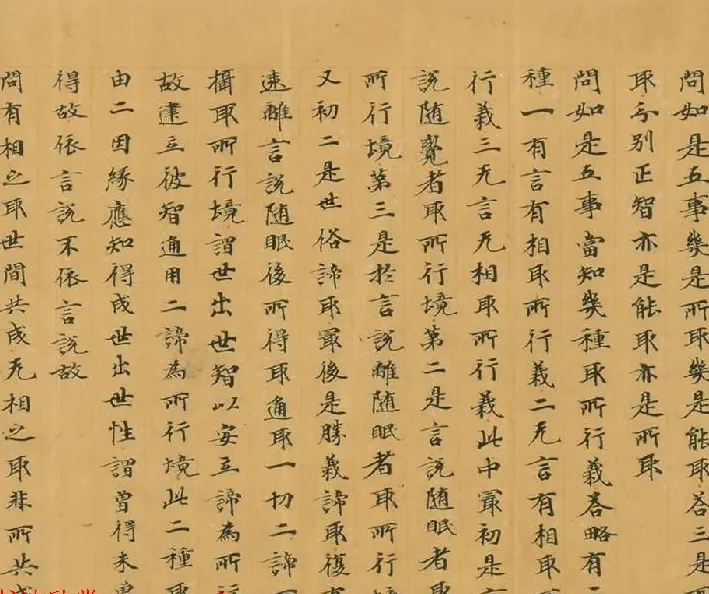 問如是五事幾是所取幾是能取荅三是
取分別正智亦是能取亦是所取
問如是五事當知幾種取所行義荅略有三
種一有言有相取所行義二无言有相取
行義三无言无相取所行義此中冣初是言
說随覺者取所行境第二是言說随眠者取
所行境第三是於言說離随眠者取所行
又初二是世俗諦取冣後是勝義諦取復
遠離言說随眠後所得取通取一切二諦
攝取所行境謂世出世智以安立諦為所行
故建立彼智通用二諦為所行境此二種取
由二因緣應知得成世出世性謂曾得未曾
得故依言說不依言說故
問有相之取世間共成无相之取非所共成